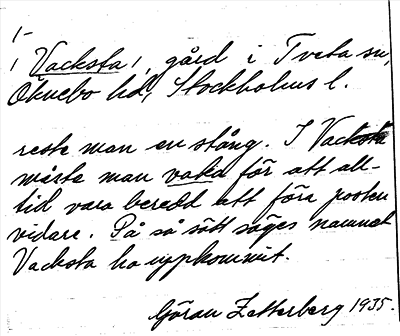 1-
| Vacksta |, gård i Tveta sn,
Öknebo hd, Stockholms l.
reste man en stång. I Vacksta
måste man vaka för att all-
tid vara beredd att föra posten
vidare. På så sätt säges namnet
Vacksta ha uppkommit.
Göran Zetterberg 1935.